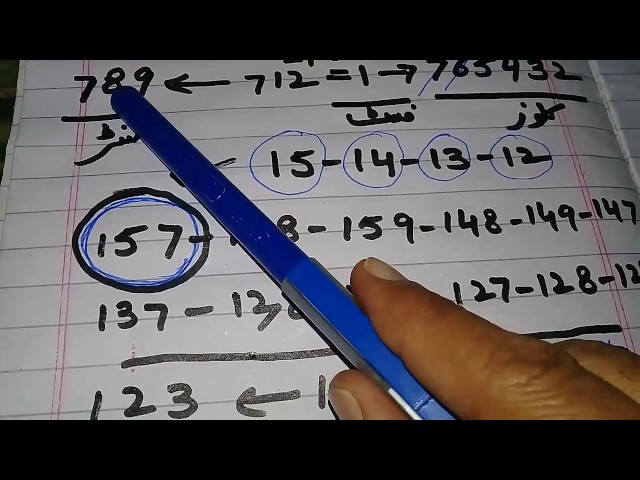 789 ← 712 = 1 → 765432
سنٹر فسٹ کلوز
15 - 14 - 13 - 12
157 - 8 - 159 - 148 - 149 - 147
137 - 127 - 128 - 12
123 ← 1